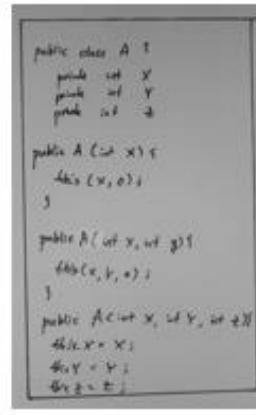 public class A {
private int X
private int Y
private int Z
public A (int X) {
this (X, 0);
}
public A (int X, int y) {
this (X, Y, 0);
}
public A (int X, int Y, int Z) {
this.X = X;
this.Y = Y;
this.Z = Z;